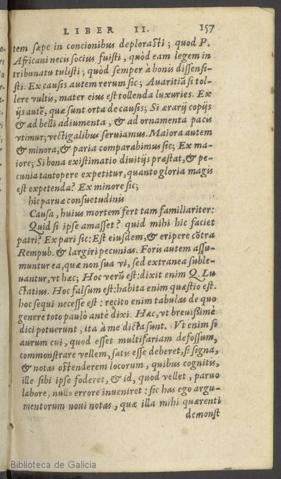 LIBER II. 157
tem sæpe in concionibus deplorasti; quod P.
Africani necis socius fuisti, quòd eam legem in
tribunatu tulisti; quòd semper à bonis dissensi-
sti. Ex causis autem rerum sic; Auaritiã si tol-
lere vultis, mater eius est tollenda luxuries. Ex
ijs autẽ, quæ sunt orta de causis; Si ærarij copijs
& ad belli adiumenta, & ad ornamenta pacis
vtimur, vectigalibus seruiamus. Maiora autem
& minora, & paria comparabimus sic; Ex ma-
iore; Si bona existimatio diuitijs præstat, & pe-
cunia tantopere expetitur, quanto gloria magis
est expetenda? Ex minore sic;
hic paruæ consuetudinis
Causa, huius mortem fert tam familiariter:
Quid si ipse amasset? quid mihi hic faciet
patri? Ex pari sic: Est eiusdem, & eripere cõtra
Rempub. & largiri pecunias. Foris autem assu-
muntur ea, quæ non sua vi, sed extranea suble-
uantur, vt hæc; Hoc verũ est: dixit enim Q. Lu
ctatius. Hoc falsum est: habita enim quæstio est.
hoc sequi necesse est: recito enim tabulas de quo
genere toto paulò antè dixi. Hæc, vt breuissimè
dici potuerunt, ita à me dicta sunt. Vt enim si
aurum cui, quod esset multifariam defossum,
commonstrare vellem, satis esse deberet, si signa,
& notas ostenderem locorum, quibus cognitis,
ille sibi ipse foderet, & id, quod vellet, paruo
labore, nullo errore inueniret: sic has ego argu-
mentorum noui notas, quæ illa mihi quærenti
demonst
Biblioteca de Galicia